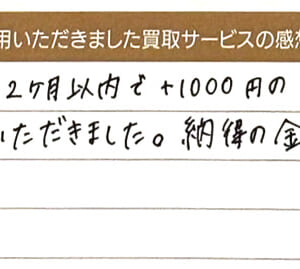 用いただきました買取サービスの感想
2ケ月以内で+1000円の
いただきました。納得の金